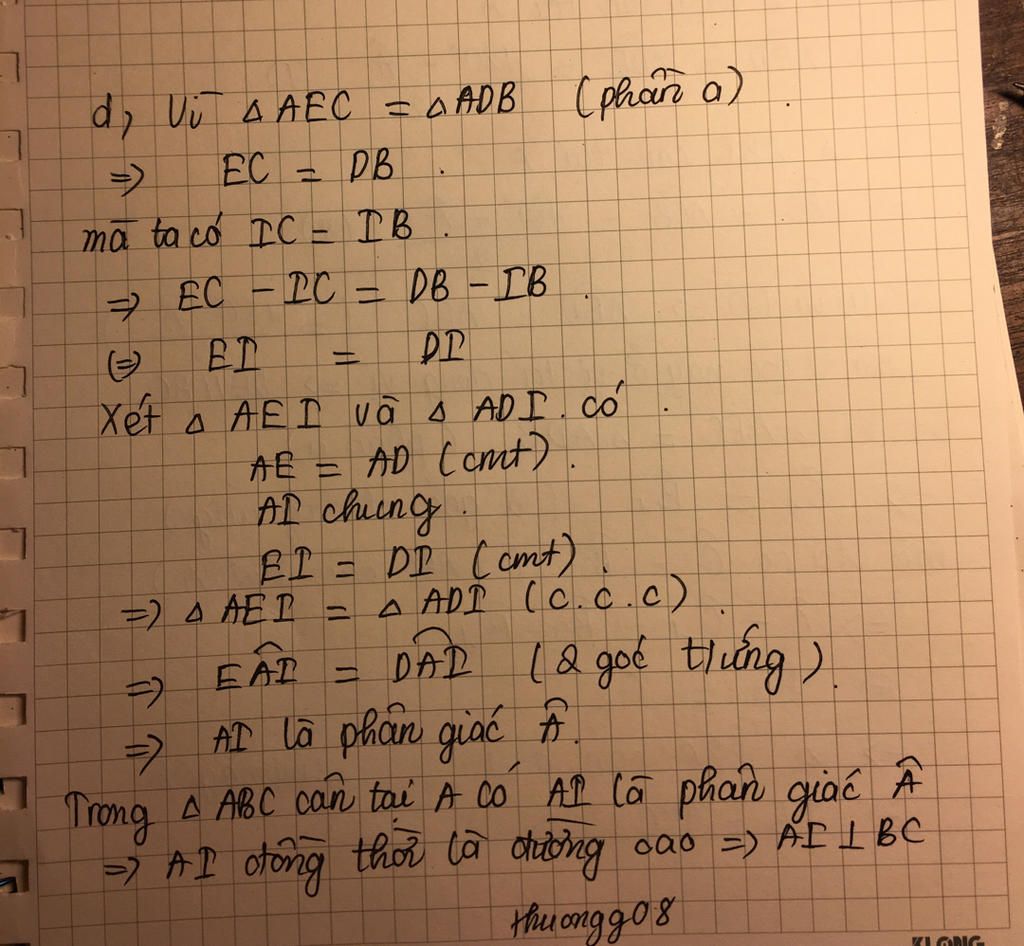 d, Vì △ AEC = △ ADB (phần a).
=> EC = DB.
mà ta có IC = IB.
=> EC - IC = DB - IB.
(=) EI = DI
Xét △ AEI và △ ADI. có.
AE = AD (cmt).
AI chung.
EI = DI (cmt).
=> △ AEI = △ ADI (c.c.c).
=> EÂI = DÂI (2 góc t/ứng).
=> AI là phân giác Â.
Trong △ ABC cân tại A có AI là phân giác Â
=> AI đồng thời là đường cao => AI ⊥ BC
thuongg08
KLONG